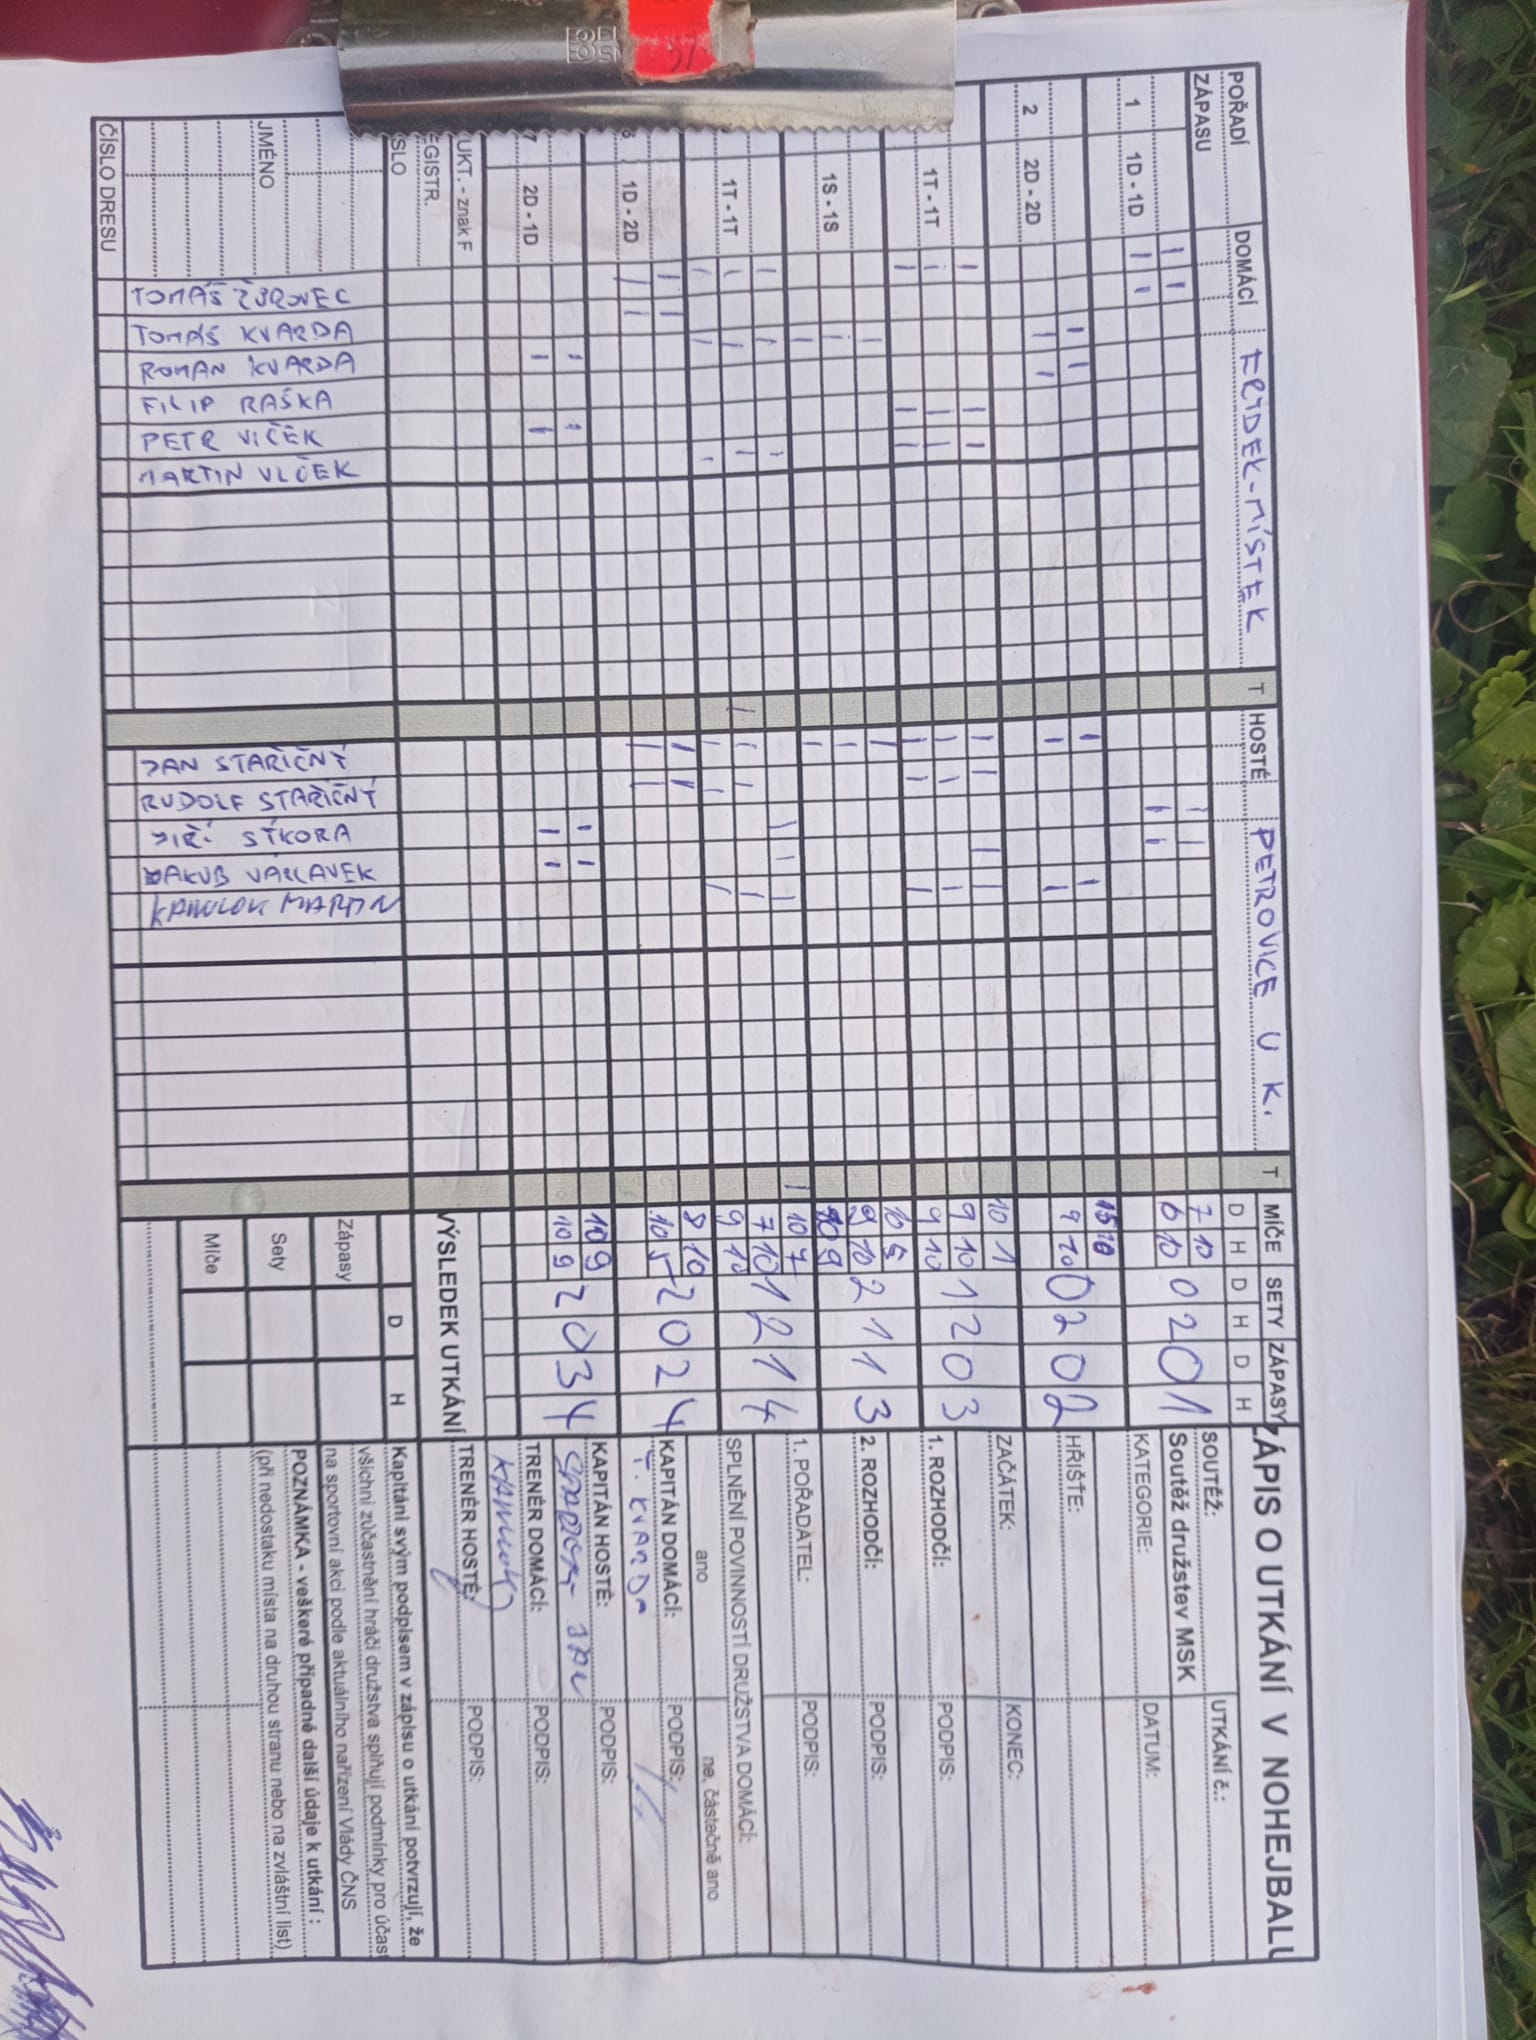 ZÁPIS O UTKÁNÍ V NOHEJBALU
POŘADÍ ZÁPASU
DOMÁCÍ
T
HOSTÉ PETROVICE U K.
T
MÍČE SETY ZÁPASY
D H D H D H
1 1D - 1D 7 10
6 10 0 2 0 1
2 2D - 2D
9 10 0 2 0 2
1T - 1T 10 1
9 10 1 2 0 3
9 10
1S - 1S 10 5
9 10 2 1 1 3
10 9
1T - 1T 10 7
7 10 1 2 1 4
9 10
6 1D - 2D 8 10
10 5 2 0 2 4
7 2D - 1D 10 9
10 9 2 0 3 4
SOUTĚŽ:
Soutěž družstev MSK
UTKÁNÍ č.:
KATEGORIE:
DATUM:
HŘIŠTĚ:
ZAČÁTEK:
KONEC:
1. ROZHODČÍ:
PODPIS:
2. ROZHODČÍ:
PODPIS:
1. POŘADATEL:
PODPIS:
SPLNĚNÍ POVINNOSTÍ DRUŽSTVA DOMÁCÍ:
ano
ne, částečně ano
KAPITÁN DOMÁCÍ:
PODPIS:
T. KVARDA
KAPITÁN HOSTÉ:
PODPIS:
TRENÉR DOMÁCÍ:
PODPIS:
TRENÉR HOSTÉ:
PODPIS:
UKT. - znak F
EGISTR.
SLO
JMÉNO
ČÍSLO DRESU
TOMÁŠ
TOMÁŠ KVARDA
ROMAN KVARDA
FILIP RAŠKA
PETR VLČEK
MARTIN VLČEK
JAN STAŘIČNÝ
RUDOLF STAŘIČNÝ
JIŘÍ SÝKORA
JAKUB VÁCLAVEK
MARTIN
VÝSLEDEK UTKÁNÍ
D H
Zápasy
Sety
Míče
Kapitáni svým podpisem v zápisu o utkání potvrzují, že
všichni zúčastnění hráči družstva splňují podmínky pro účast
na sportovní akci podle aktuálního nařízení Vlády ČNS
POZNÁMKA - veškeré případné další údaje k utkání :
(při nedostaku místa na druhou stranu nebo na zvláštní list)